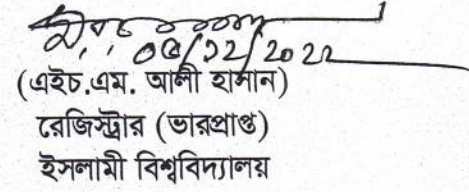 ০৫/১২/2022
(এইচ.এম. আলী হাসান)
রেজিস্ট্রার (ভারপ্রাপ্ত)
ইসলামী বিশ্ববিদ্যালয়